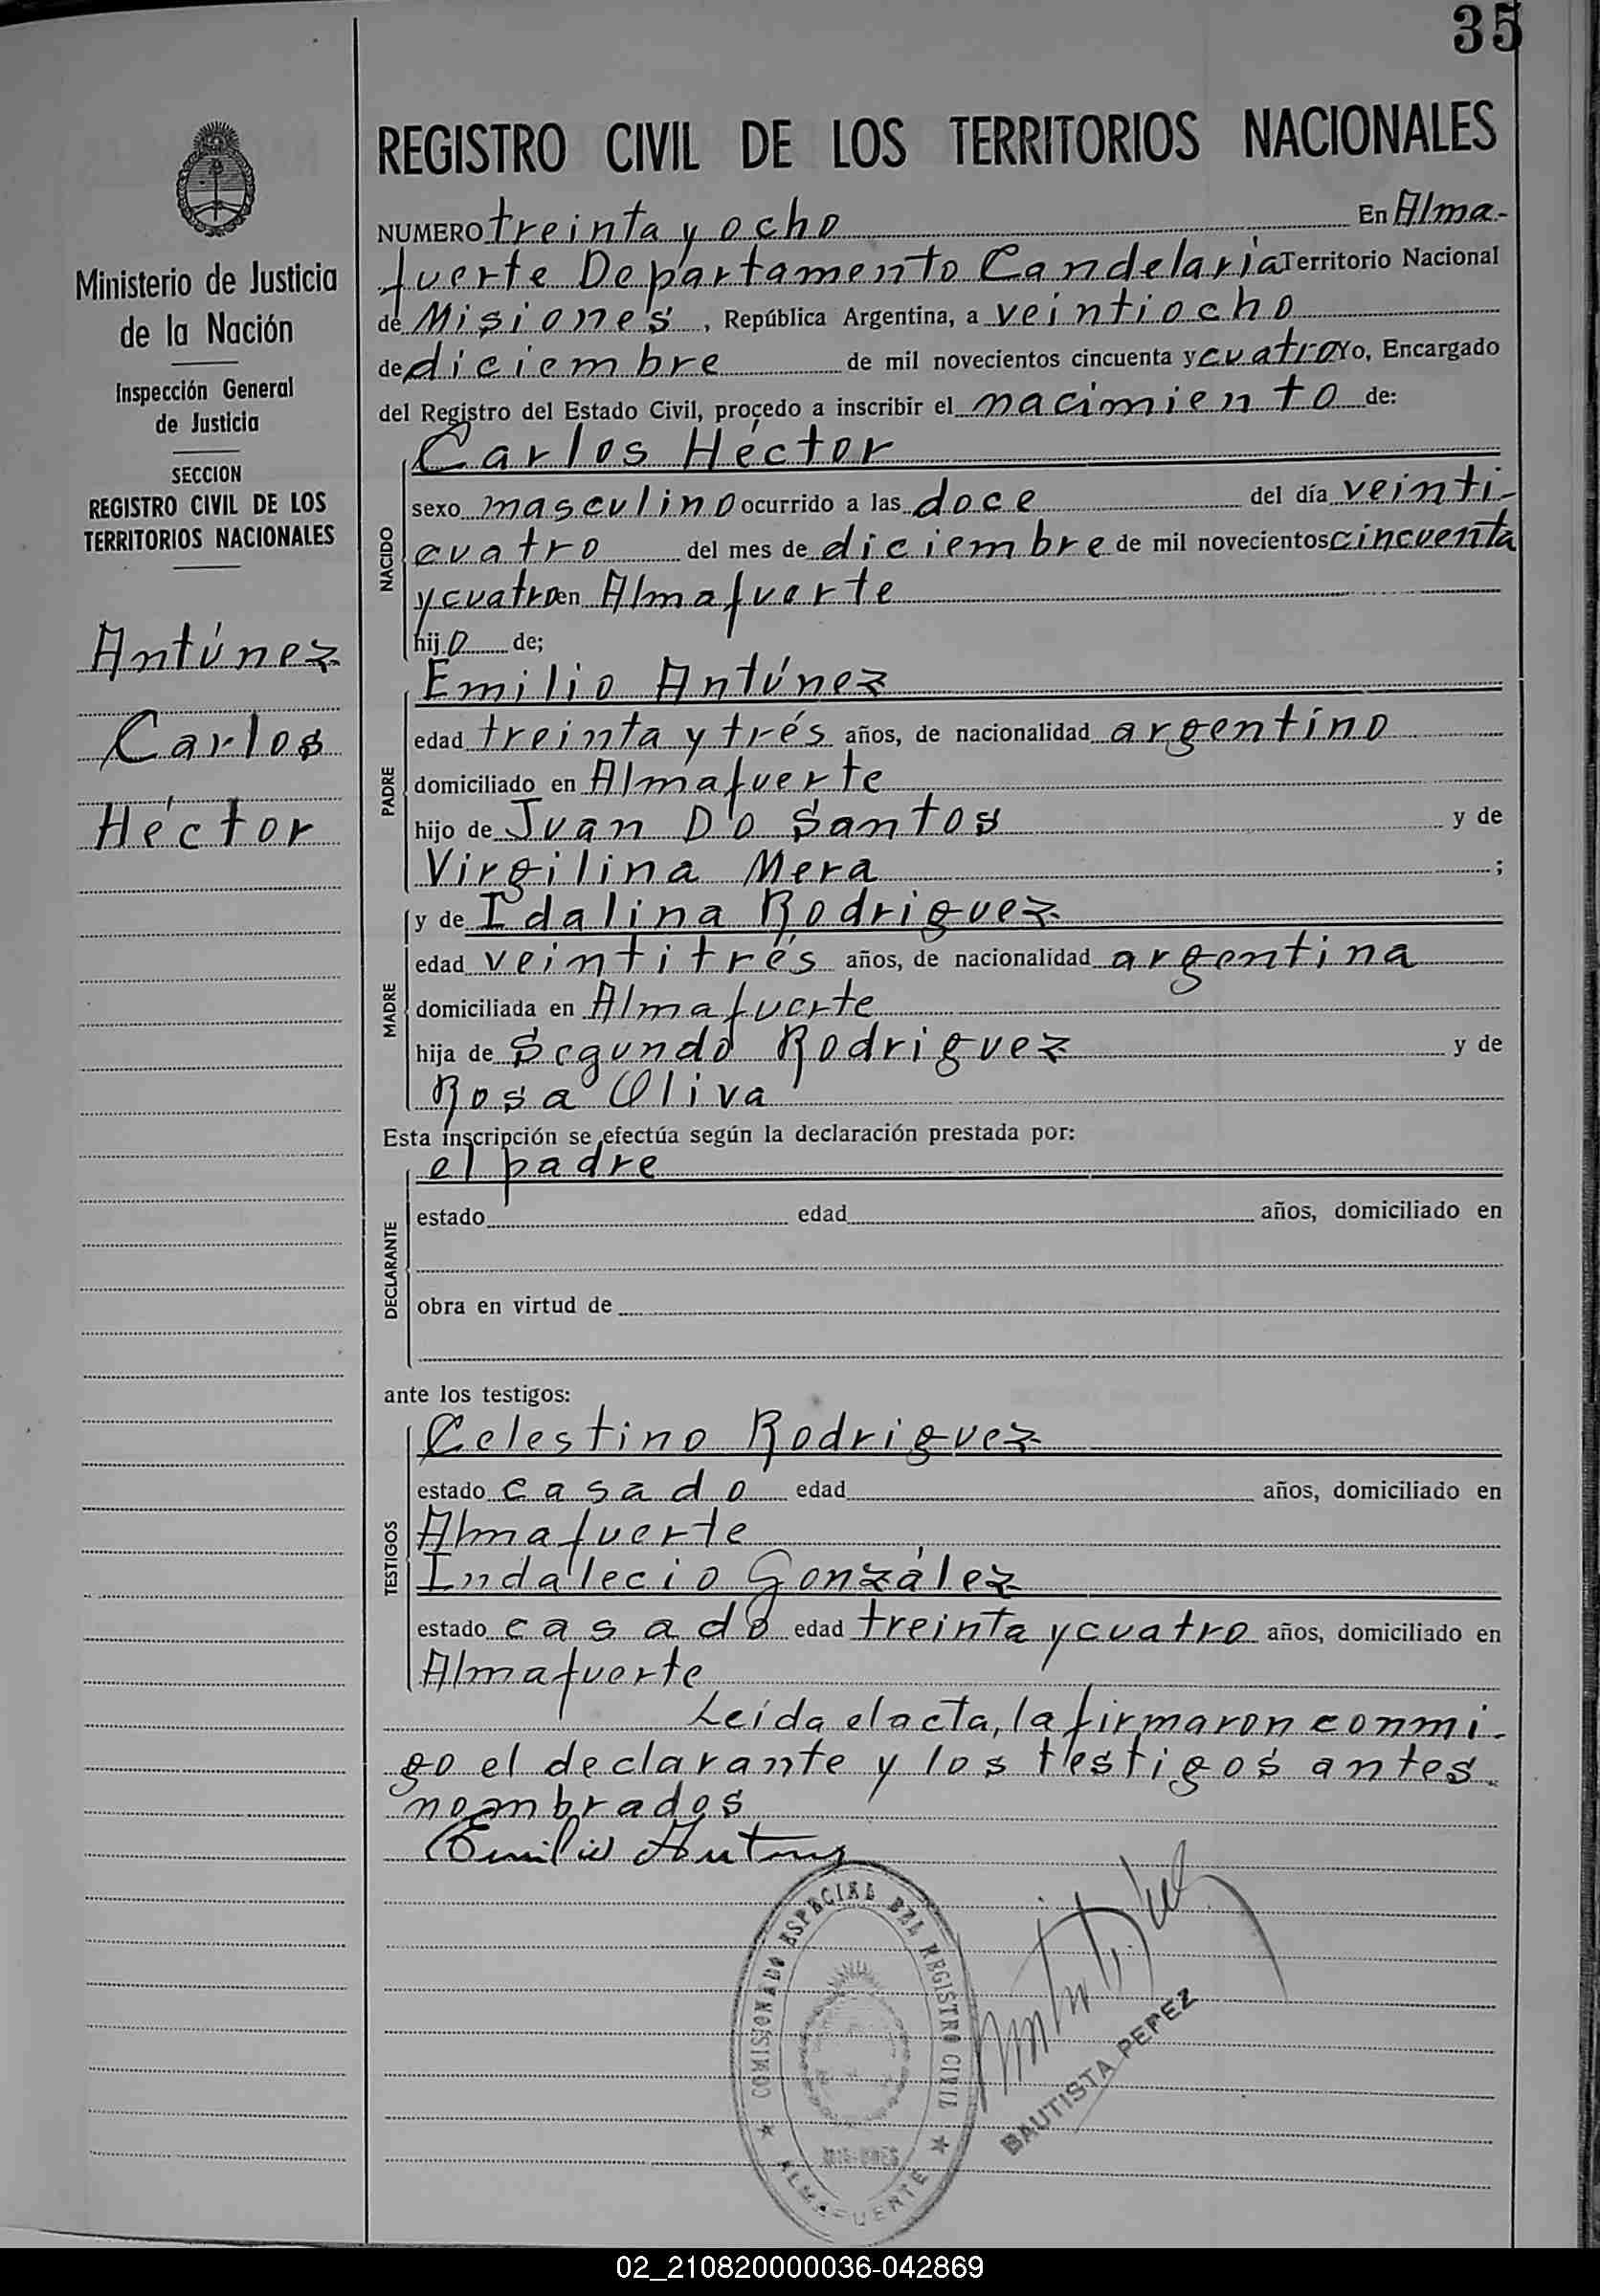 35
REGISTRO CIVIL DE LOS TERRITORIOS NACIONALES
Ministerio de Justicia
de la Nación
Inspección General
de Justicia
SECCION
REGISTRO CIVIL DE LOS
TERRITORIOS NACIONALES
Antúnez
Carlos
Héctor
NUMERO treinta y ocho En Alma-
fuerte Departamento Candelaria Territorio Nacional
de Misiones, República Argentina, a veintiocho
de diciembre de mil novecientos cincuenta y cuatro Yo, Encargado
del Registro del Estado Civil, procedo a inscribir el nacimiento de:
NACIDO
Carlos Héctor
sexo masculino ocurrido a las doce del día veinti-
cuatro del mes de diciembre de mil novecientos cincuenta
y cuatro en Almafuerte
hijo de;
PADRE
Emilio Antúnez
edad treinta y trés años, de nacionalidad argentino
domiciliado en Almafuerte
hijo de Juan Do Santos y de
Virgilina Mera ;
y de Idalina Rodriguez
MADRE
edad veintitrés años, de nacionalidad argentina
domiciliada en Almafuerte
hija de Segundo Rodriguez y de
Rosa Oliva
Esta inscripción se efectúa según la declaración prestada por:
DECLARANTE
el padre
estado edad años, domiciliado en
obra en virtud de
ante los testigos:
TESTIGOS
Celestino Rodriguez
estado casado edad años, domiciliado en
Almafuerte
Indalecio González
estado casado edad treinta y cuatro años, domiciliado en
Almafuerte
Leída el acta, la firmaron conmi-
go el declarante y los testigos antes
nombrados
Emilio Antunez
COMISIONADO ESPECIAL DEL REGISTRO CIVIL
MISIONES
ALMAFUERTE
BAUTISTA PEREZ
02_210820000036-042869